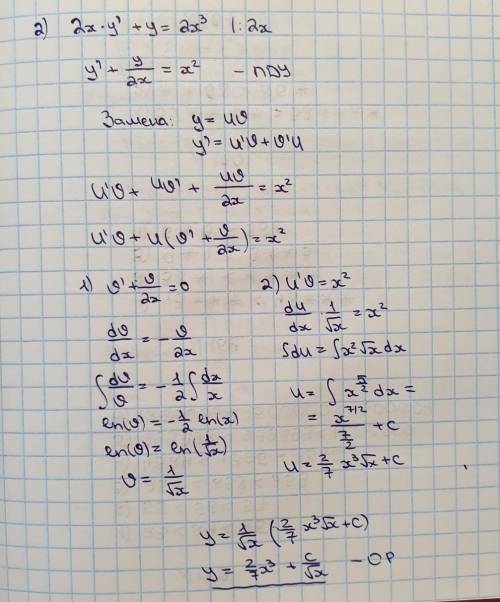 2) 2x·y' + y = 2x³ |: 2x
y' + y/2x = x² – ЛДУ
Замена: y = uϑ
y' = u'ϑ + ϑ'u
u'ϑ + uϑ' + uϑ/2x = x²
u'ϑ + u(ϑ' + ϑ/2x) = x²
1) ϑ' + ϑ/2x = 0
dϑ/dx = - ϑ/2x
∫ dϑ/ϑ = - 1/2 ∫ dx/x
ln(ϑ) = - 1/2 ln(x)
ln(ϑ) = ln(1/√x)
ϑ = 1/√x
2) u'ϑ = x²
du/dx · 1/√x = x²
∫du = ∫x²√x dx
u = ∫ x^(5/2) dx =
= x^(7/2) / (7/2) + c
u = 2/7 x³√x + c
y = 1/√x (2/7 x³√x + c)
y = 2/7 x³ + c/√x – ОР